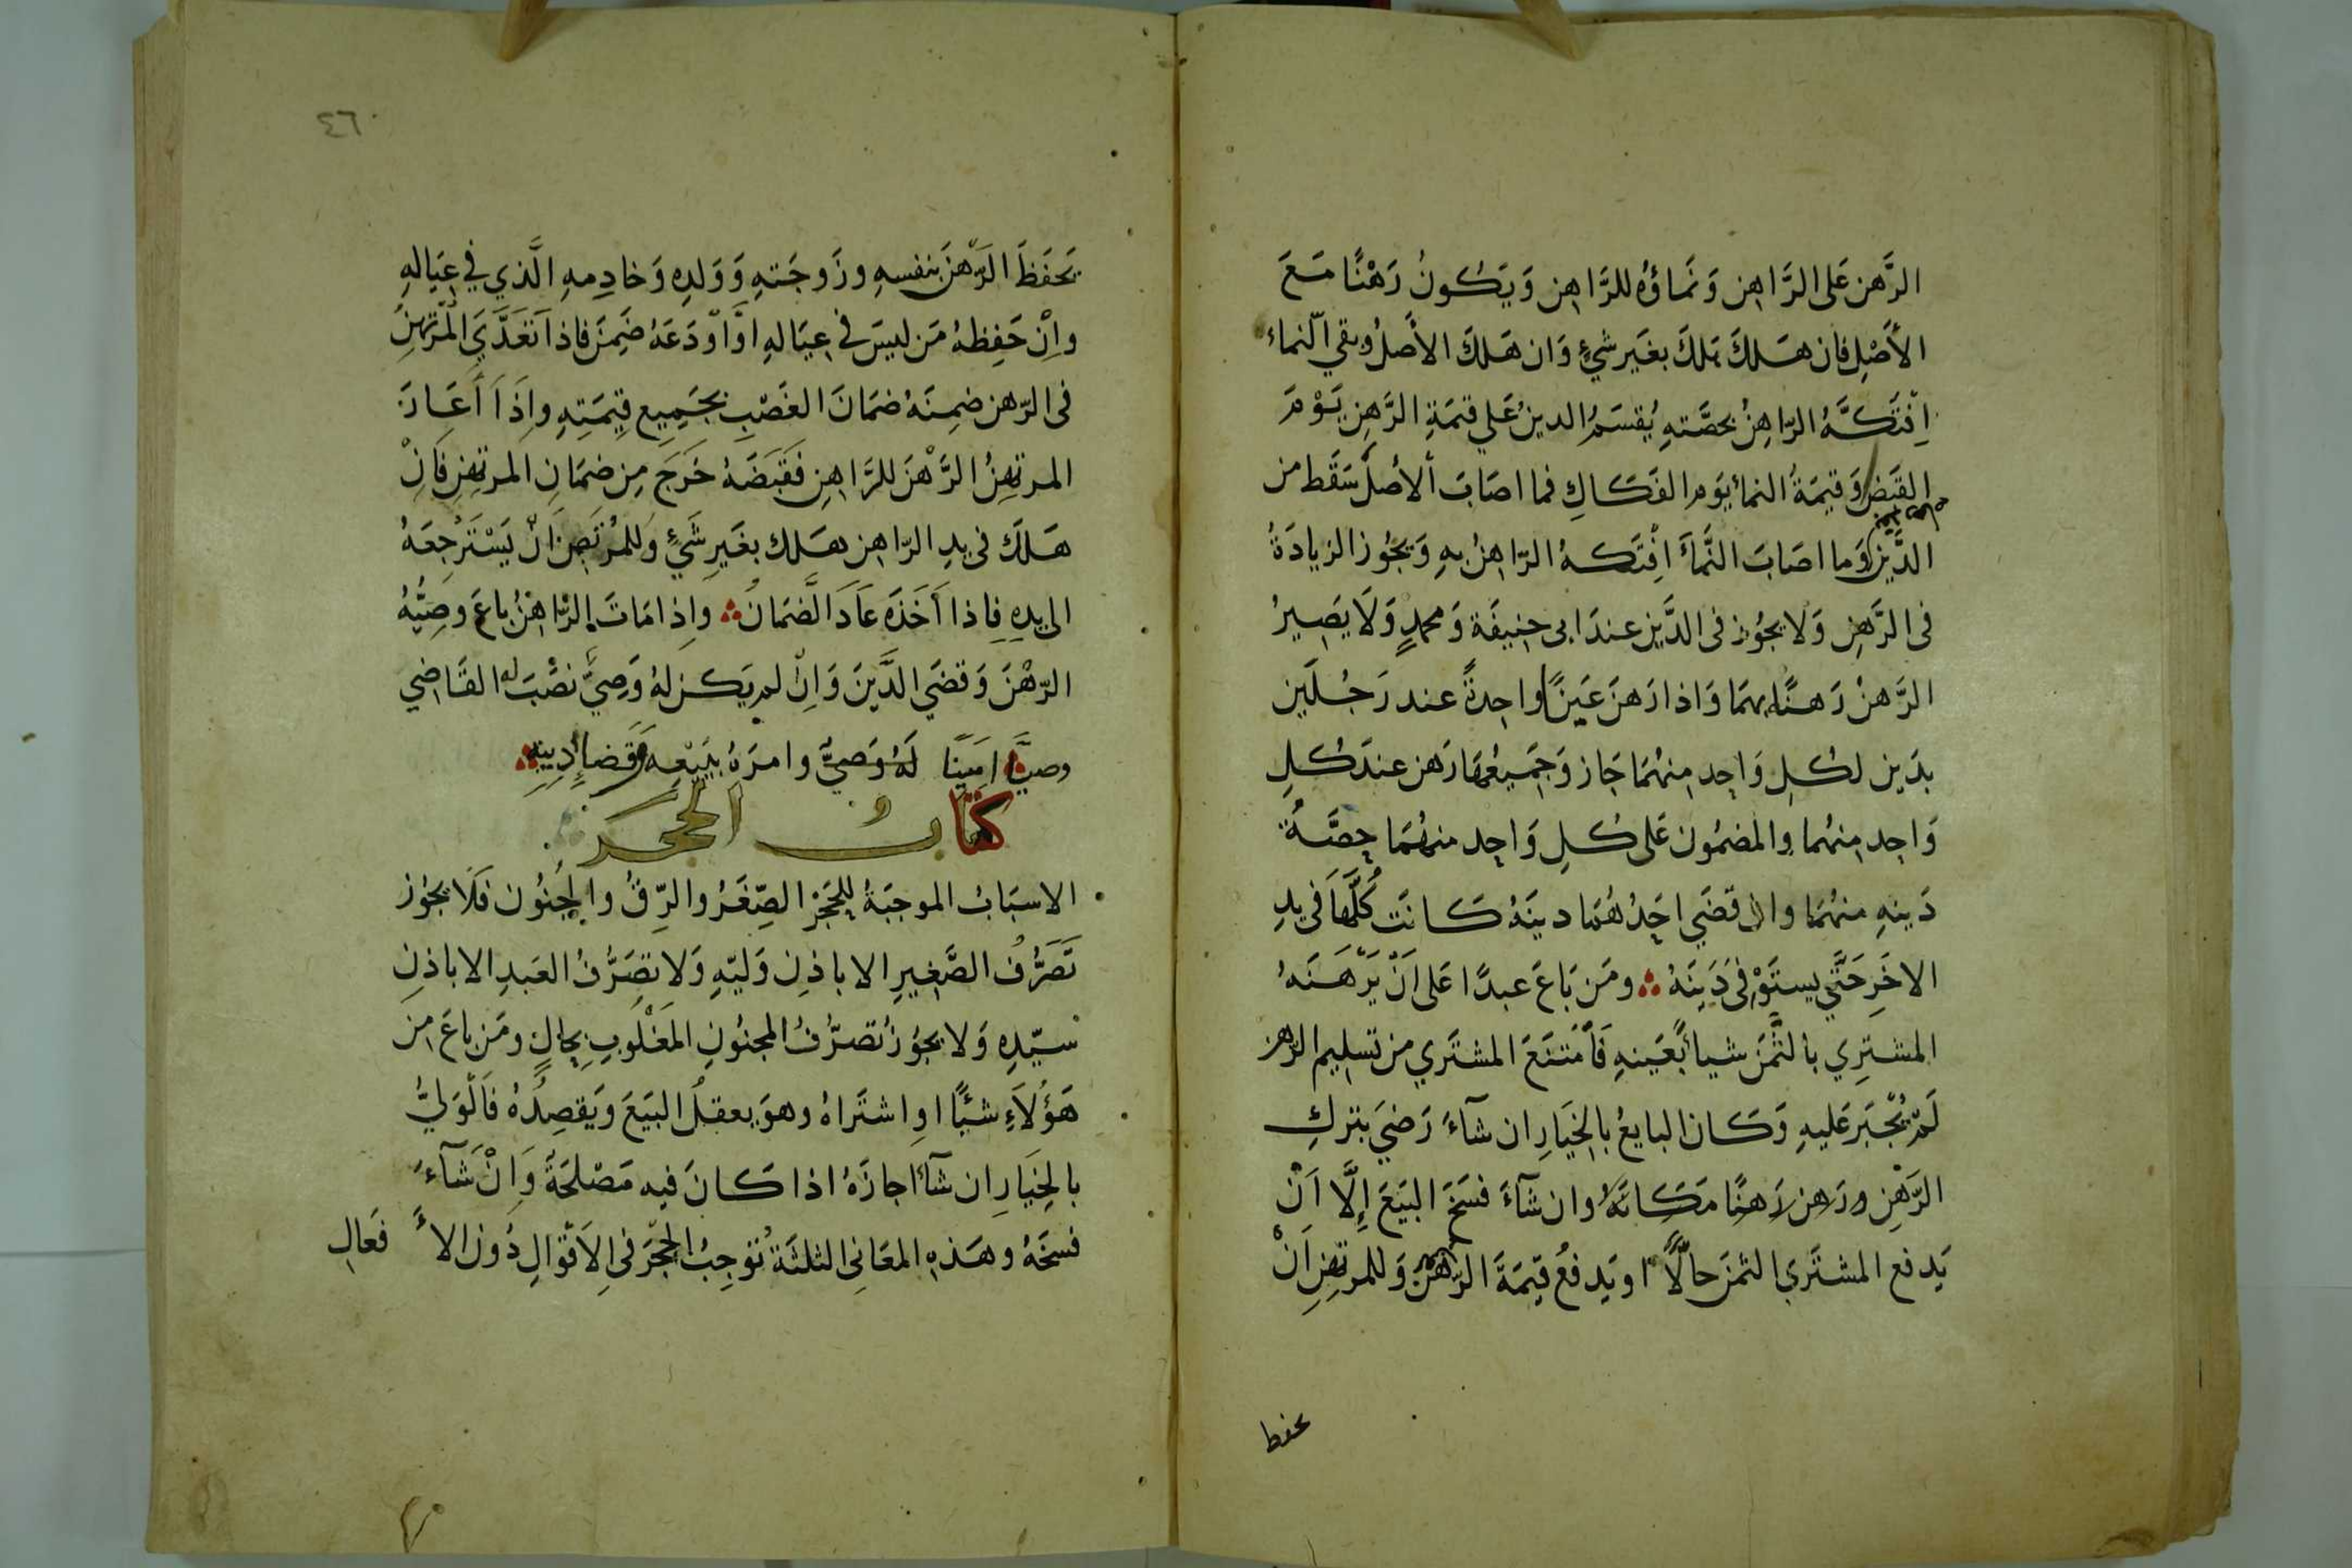 الرَّهن عَلى الرَّاهِن وَنَمَاؤُه للرَّاهِن وَيَكُونُ رَهْنًا مَعَ
الأَصْلِ فان هَلكَ هَلكَ بغَيرشيءٍ وَان هَلكَ الأصلُ وبقي النماء
اِفْتَكَّهُ الرّاهِنُ بحصَّتهِ يُقسَمُ الدينُ عَلي قيمَةِ الرَّهنِ يَوْمَ
القبَضِ وَقيمَةُ النمأ يَوم الفَكَاكِ فما اصَابَ ألأصلَ سَقَط من
الدَّينِ وَما اصَابَ النَّمأَ اِفْتَكهُ الرّاهنُ بهِ وَيجُوز الزيادَةُ
فى الرَّهنِ وَلا يجُوز فى الدَّين عندَ ابى حنيفَة وَمحمدٍ وَلَا يَصِيرُ
الرَّهنُ رَهنًا بهمَا وَاذا رَهنَ عَينًا واحِدةً عند رَجُلَين
بدَين لكُلِ وَاحِد مِنهُمَا جَاز وَجَميعُهَا رَهن عندَ كُلِ
وَاحِد مِنهُما والمضمُون عَلى كُلِ وَاحِد منهُمَا حِصَّةُ
دَينهِ منهُمَا وان قضَي احَدُهُمَا دينَهُ كَانَت كُلَّهَا فى يدِ
الاخَرِ حَتَّي يستَوْفىَ دَينَهُ ومَن بَاعَ عبدًا عَلى اَنْ يَرْهَنَهُ
المشترِي بالثَّمَن شيأً بعَينهِ فَأمْتنَعَ المشتَري من تسليم الرّهن
لَمْ يُجْبَر عَليهِ وَكَان البايعُ بالخيَارِ ان شآءَ رَضيَ بتركِ
الرَّهْنِ ورَهن رَهنًا مَكَانَهُ وان شآءَ فسَخَ البَيَعَ إِلَّا اَنْ
يَدفع المشتَري الثمنَ حالًّا او يَدفعُ قيمَةَ الرّهن وَللمرتهِنِ اَنْ
يحفظ
٤٦
يَحفَظَ الرّهنَ بنفسهِ وزَوجَتهِ وَوَلدِه وَخادِمهِ الَّذي في عِيَالهِ
واِنْ حَفِظهُ مَن ليسَ فى عِيَالهِ اوْ أوْدَعَهُ ضَمِنَ فاذا تَعَدَّي المُرتهِنُ
فى الرّهن ضمِنَهُ ضمَانَ الغَصْبِ بجَمِيع قِيمَتِهِ واِذَا أعَارَ
المرتهِنُ الرَّهْنَ للرَّاهِنِ فَقَبَضَهُ خَرَجَ مِن ضمَانِ المرتهِنِ فَاِنْ
هَلَكَ فى يدِ الرّاهِن هَلك بغَيرِ شَيءٍ وَللمُرْتَهِنِ انْ يَسْتَرْجِعَهُ
الى يدِهِ فاِذا أَخَذَه عَادَ الضَّمَانُ واِذا مَاتَ الرّاهنُ باعَ وصِيُّهُ
الرّهْنَ وَقضَي الدَّينَ وَاِنْ لم يَكن لهُ وَصِيٌّ نصْبَ له القَاضي
وصيًّا امَينًا لَهُ وَصيٌّ وامرَهُ بِبَيْعِهِ وَقَضاءِ دينِهِ
كتَابُ الحجر
الاسبَابُ الموجبَةُ للحَجْرِ الصِّغَرُ والرِّقُ والجُنُون فَلَا يجُوز
تَصَرُّفُ الصَّغيرِ الا باذِن وَليّهِ وَلا تصَرُّفُ العَبدِ الا باذنِ
سيّدِهِ وَلا يجُوزُ تصرُّفُ المجنُونِ المَغْلُوبِ بِحالٍ ومَن باعَ مِن
هَؤُلَاءِ شيْئًا اوِاشتَراهُ وهوَ يعقلُ البَيَعَ وَيَقصِدُهُ فَالْوَليُّ
بالخِيَارِ ان شآأ اجازَهُ اذا كانَ فيه مَصْلحَةً وَاِنْ شَآءَ
فسخَهُ وهَذهِ المعَاني الثلثَةُ تُوجِبُ الحجْرَ فى الاَقْوَالِ دُون الأَفعَالِ